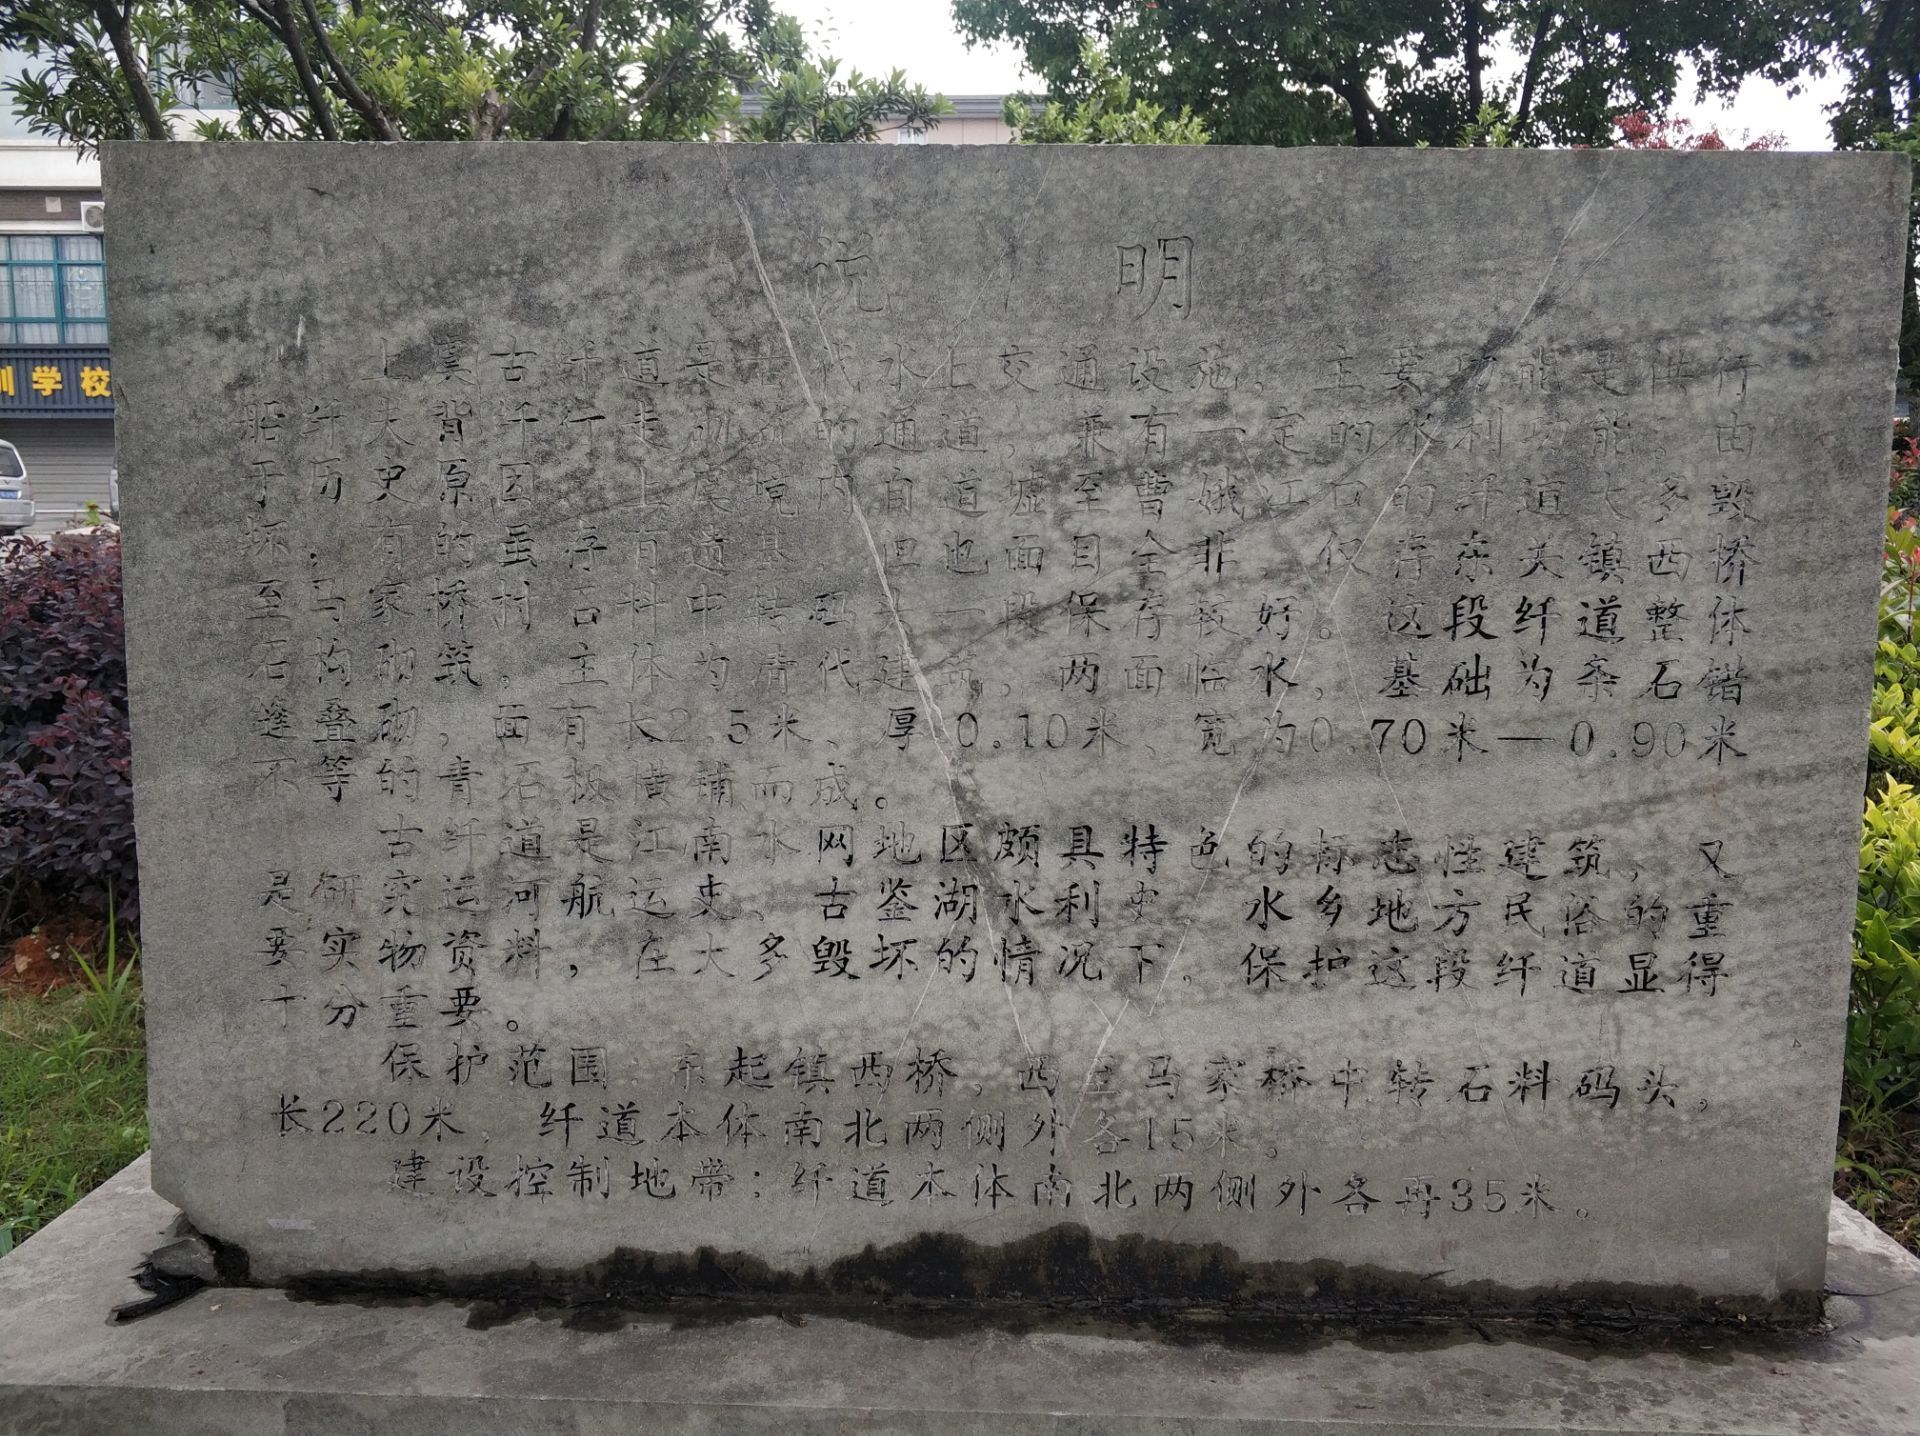 说明
上虞古纤道是古代水上交通设施，主要功能是供行
船纤夫背纤行走砌筑的通道，兼有一定的水利功能。由
于历史原因，上虞境内自道墟至曹娥江口的纤道大多毁
坏，有的虽存有遗基，但也面目全非，仅存东关镇西桥
至马家桥村石料中转码头一段保存较好。这段纤道整体
石构砌筑，主体为清代建筑，两面临水，基础为条石错
缝叠砌，面有长2.5米、厚0.10米、宽为0.70米—0.90米
不等的青石板横铺而成。
古纤道是江南水网地区颇具特色的标志性建筑，又
是研究运河航运史、古鉴湖水利史、水乡地方民俗的重
要实物资料，在大多毁坏的情况下，保护这段纤道显得
十分重要。
保护范围：东起镇西桥，西至马家桥中转石料码头，
长220米，纤道本体南北两侧外各15米。
建设控制地带：纤道本体南北两侧外各再35米。
训学校